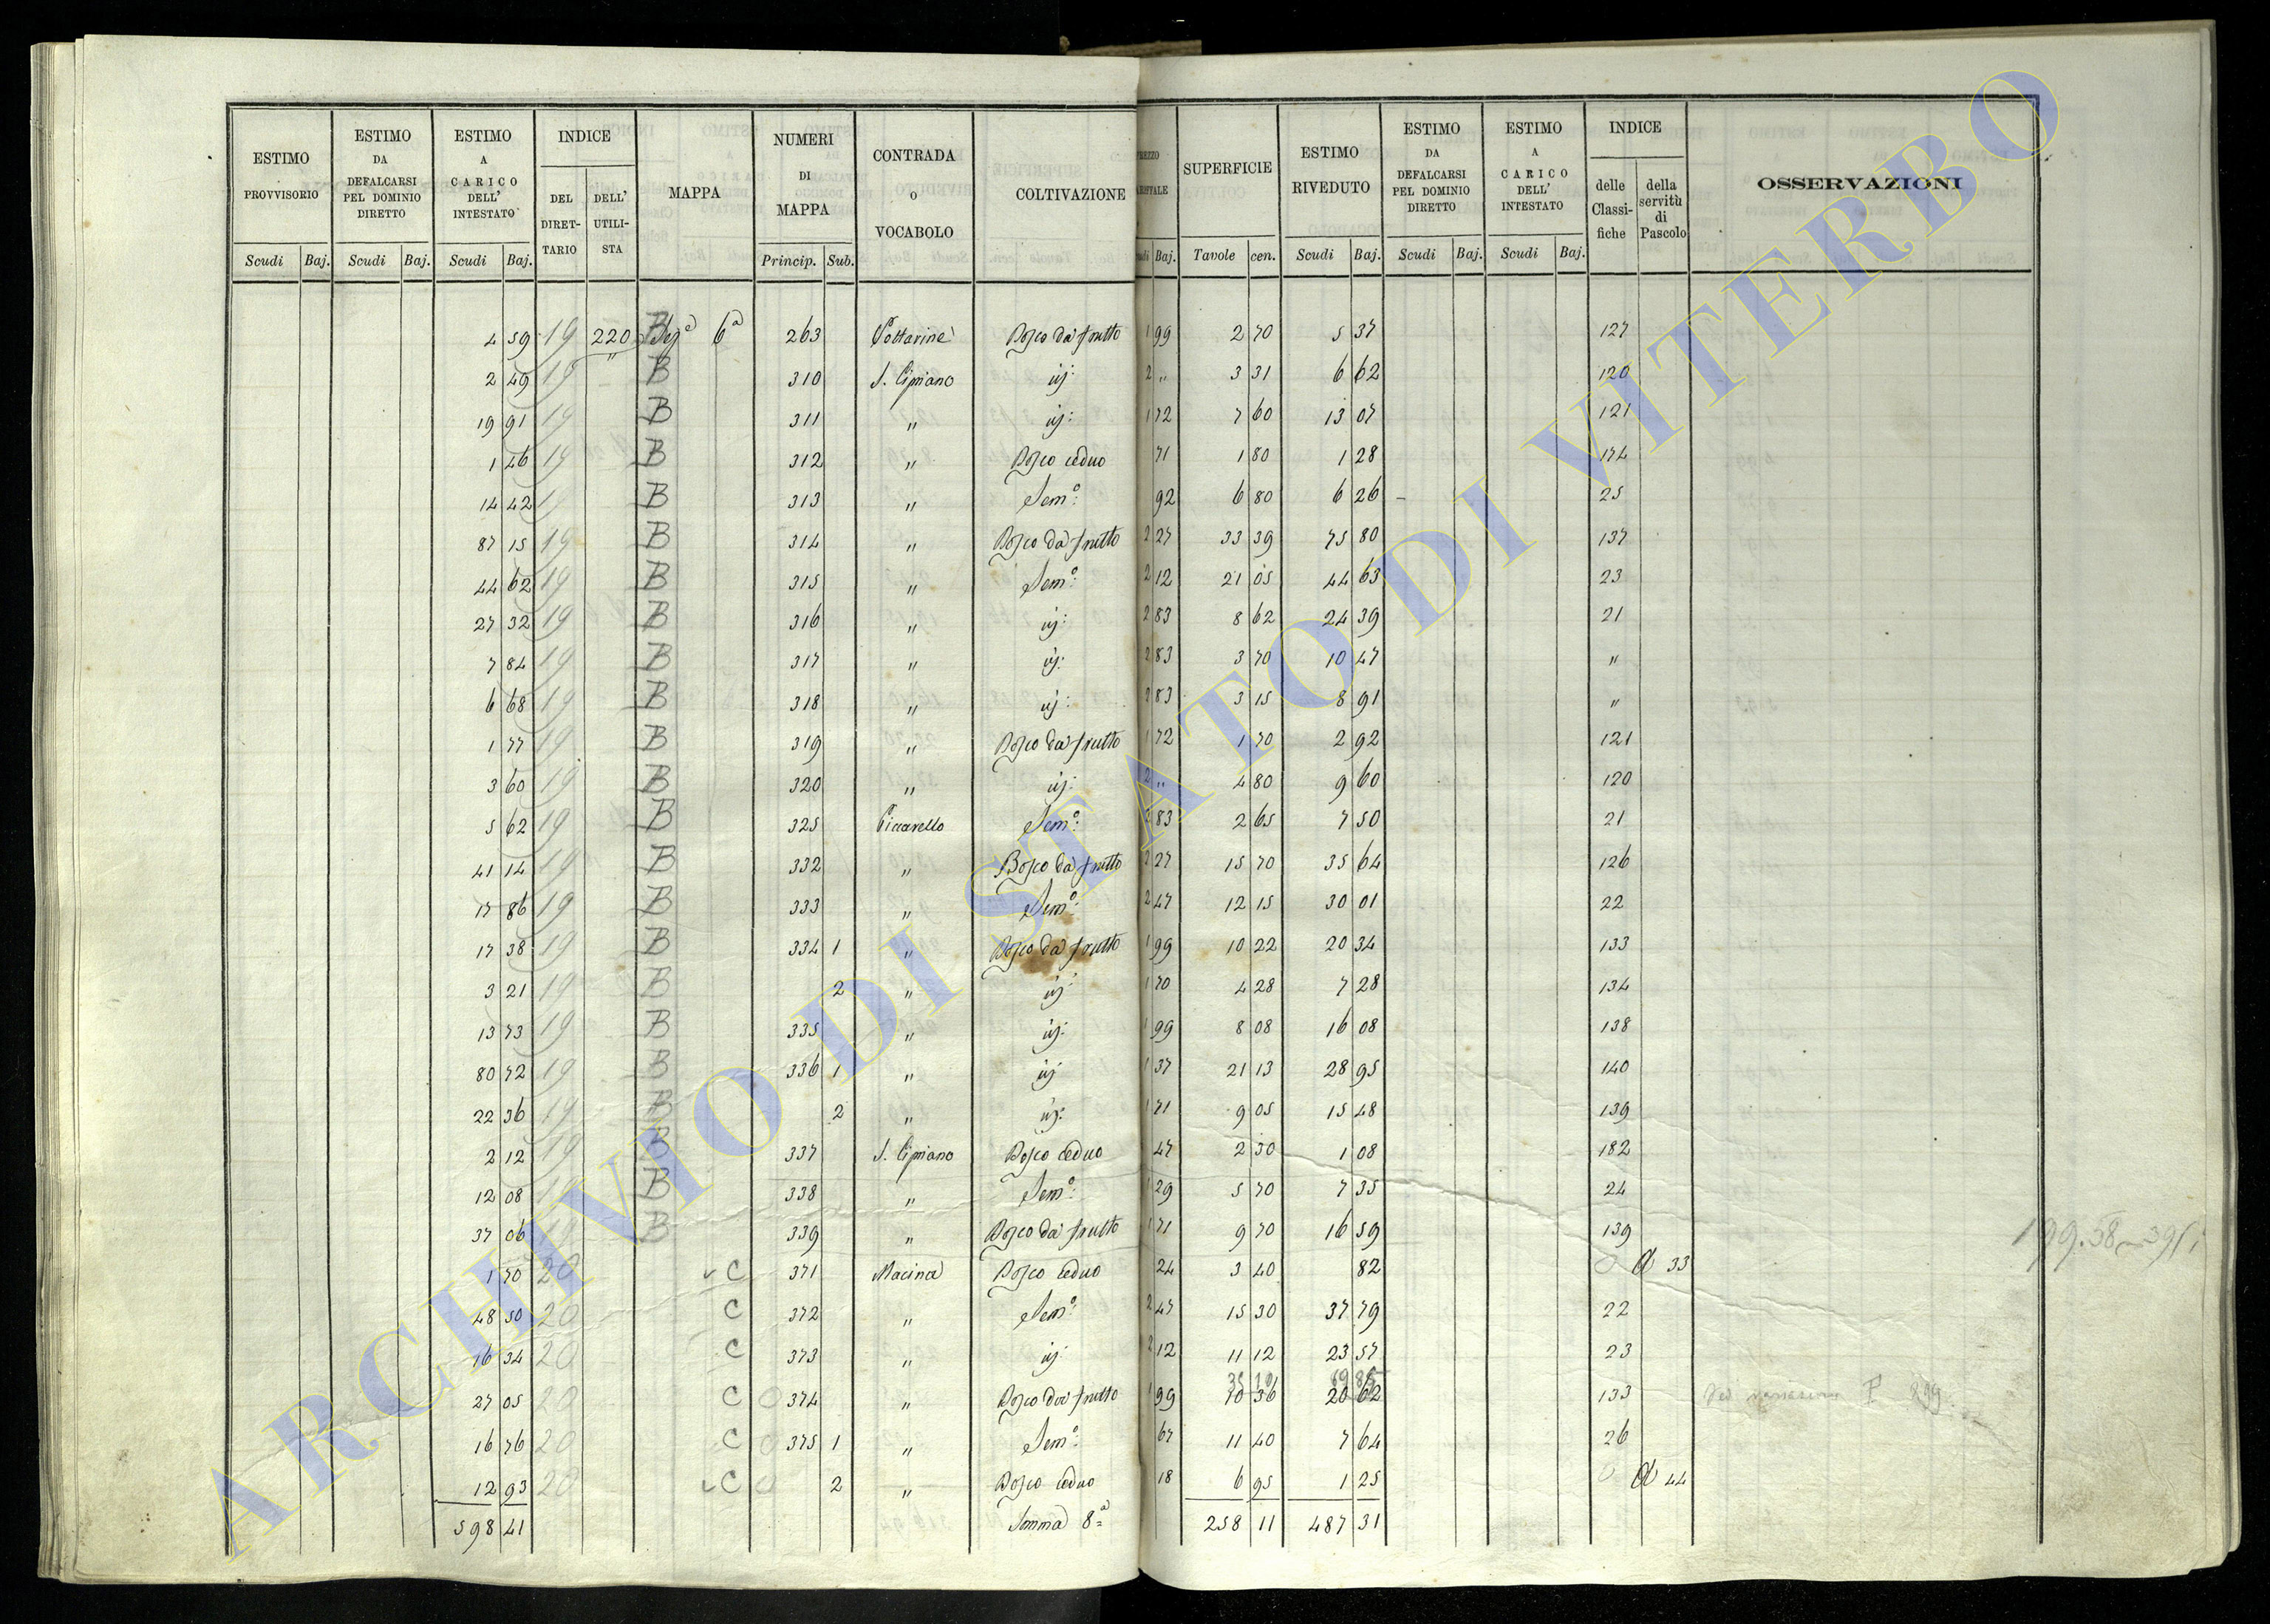 ESTIMO PROVVISORIO | ESTIMO DA DEFALCARSI PEL DOMINIO DIRETTO | ESTIMO A CARICO DELL' INTESTATO | INDICE | MAPPA | NUMERI DI MAPPA | CONTRADA O VOCABOLO | COLTIVAZIONE | SUPERFICIE | ESTIMO RIVEDUTO | ESTIMO DA DEFALCARSI PEL DOMINIO DIRETTO | ESTIMO A CARICO DELL' INTESTATO | INDICE | OSSERVAZIONI
DEL DIRET-TARIO | DELL' UTILI-STA | delle Classi-fiche | della servitù di Pascolo
Scudi Baj. | Scudi Baj. | Scudi Baj. | Princip. Sub. | Baj. | Tavole cen. | Scudi Baj. | Scudi Baj. | Scudi Baj.
4 59 19 220 B 6ª 263 Bosco da frutto 1 99 2 70 5 37 127
2 49 19 " B 310 S. Cipriano id: 2 " 3 31 6 62 120
19 91 19 B 311 " id: 1 72 7 60 13 07 121
1 46 19 B 312 " Bosco ceduo 71 1 80 1 28 174
14 42 19 B 313 " Semº: 92 6 80 6 26 25
87 15 19 B 314 " Bosco da frutto 2 27 33 39 75 80 137
44 62 19 B 315 " Semº: 2 12 21 05 44 63 23
27 32 19 B 316 " id: 2 83 8 62 24 39 21
7 84 19 B 317 " id: 2 83 3 70 10 47 "
6 68 19 B 318 " id: 2 83 3 15 8 91 "
1 77 19 B 319 " Bosco da frutto 1 72 1 70 2 92 121
3 60 19 B 320 " id: 2 " 4 80 9 60 120
5 62 19 B 325 Piccarello Semº: 2 83 2 65 7 50 21
41 14 19 B 332 " Bosco da frutto 2 27 15 70 35 64 126
17 86 19 B 333 " Semº: 2 47 12 15 30 01 22
17 38 19 B 334 1 " Bosco da frutto 1 99 10 22 20 34 133
3 21 19 B 2 " id: 1 70 4 28 7 28 134
13 73 19 B 335 " id: 1 99 8 08 16 08 138
80 72 19 B 336 1 " id: 1 37 21 13 28 95 140
22 36 19 B 2 " id: 1 71 9 05 15 48 139
2 12 19 B 337 S. Cipriano Bosco ceduo 47 2 30 1 08 182
12 08 19 B 338 " Semº: 1 29 5 70 7 35 24
37 06 19 B 339 " Bosco da frutto 1 71 9 70 16 59 139
1 70 20 C 371 Macina Bosco ceduo 24 3 40 82 0 a 33
48 50 20 C 372 " Semº: 2 47 15 30 37 79 22
16 34 20 C 373 " id: 2 12 11 12 23 57 23
27 05 20 C 0 374 " Bosco da frutto 1 99 10 36 20 62 133
16 76 20 C 0 375 1 " Semº: 67 11 40 7 64 26
12 93 20 C 0 2 " Bosco ceduo 18 6 95 1 25 0 a 44
598 41 Somma 8ª 258 11 487 31
ARCHIVIO DI STATO DI VITERBO